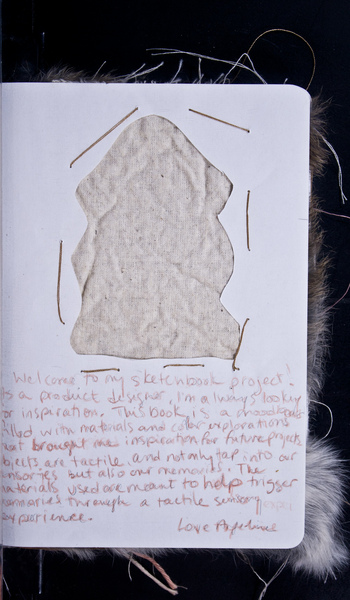 Welcome to my sketchbook project!
As a product designer, I'm always looking
for inspiration. This book is a
filled with materials and color explorations
that brought me inspiration for future projects
objects are tactile and not only tap into our
but also our memories. The
materials used are meant to help trigger
memories through a tactile sensory
experience.
Love